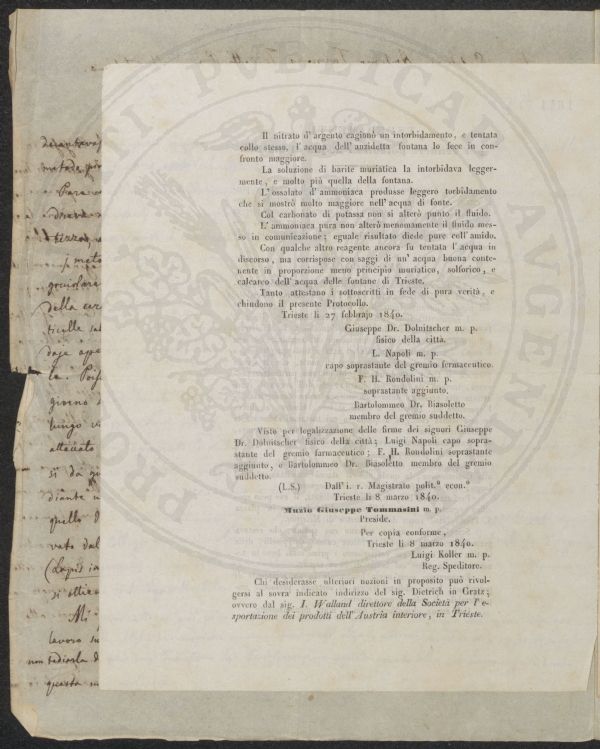 Il nitrato d'argento cagionò un intorbidamento, e tentata
collo stesso, l'acqua dell'anzidetta fontana lo fece in con-
fronto maggiore.
La soluzione di barite muriatica la intorbidava legger-
mente, e molto più quella della fontana.
L'ossalato d'ammoniaca produsse leggero torbidamento
che si mostrò molto maggiore nell'acqua di fonte.
Col carbonato di potassa non si alterò punto il fluido.
L'ammoniaca pura non alterò menomamente il fluido mes-
so in comunicazione; eguale risultato diede pure coll'amido.
Con qualche altro reagente ancora fu tentata l'acqua in
discorso, ma corrispose con saggi di un'acqua buona conte-
nente in proporzione meno principio muriatico, solforico, e
calcareo dell'acqua delle fontane di Trieste.
Tanto attestano i sottoscritti in fede di pura verità, e
chiudono il presente Protocollo.
Trieste li 27 febbrajo 1840.
Giuseppe Dr. Dolnitscher m. p.
fisico della città.
L. Napoli m. p.
capo soprastante del gremio fermaceutico.
F. H. Rondolini m. p.
soprastante aggiunto.
Bartolommeo Dr. Biasoletto
membro del gremio suddetto.
Visto per legalizzazione delle firme dei signori Giuseppe
Dr. Dolnitscher fisico della città; Luigi Napoli capo sopra-
stante del gremio farmaceutico; F. H. Rondolini soprastante
aggiunto, e Bartolommeo Dr. Biasoletto membro del gremio
suddetto.
(L.S.) Dall' i. r. Magistrato polit.° econ.°
Trieste li 8 marzo 1840.
Muzio Giuseppe Tommasini m. p.
Preside.
Per copia conforme,
Trieste li 8 marzo 1840.
Luigi Koller m. p.
Reg. Speditore.
Chi desiderasse ulteriori nozioni in proposito può rivol-
gersi al sovra indicato indirizzo del sig. Dietrich in Gratz;
ovvero dal sig. I. Walland direttore della Società per l'e-
sportazione dei prodotti dell'Austria interiore, in Trieste.
della
giorno
lungo
attaccato
si da
diante
quello
vato dal
Mi
lavoro su
questa